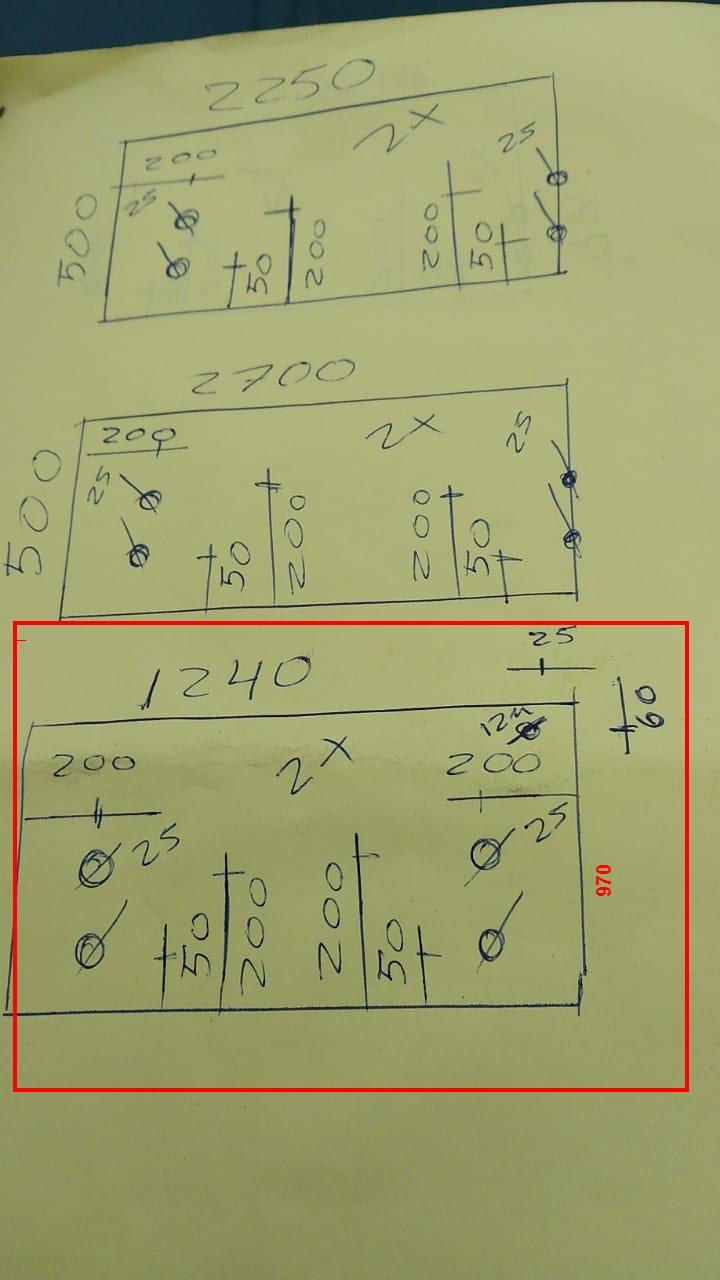 2250
200
2x
25
25
500
50
200
200
50
2700
200
2x
25
25
500
50
200
200
50
25
1240
60
12m
200
2x
200
25
25
970
50
200
200
50